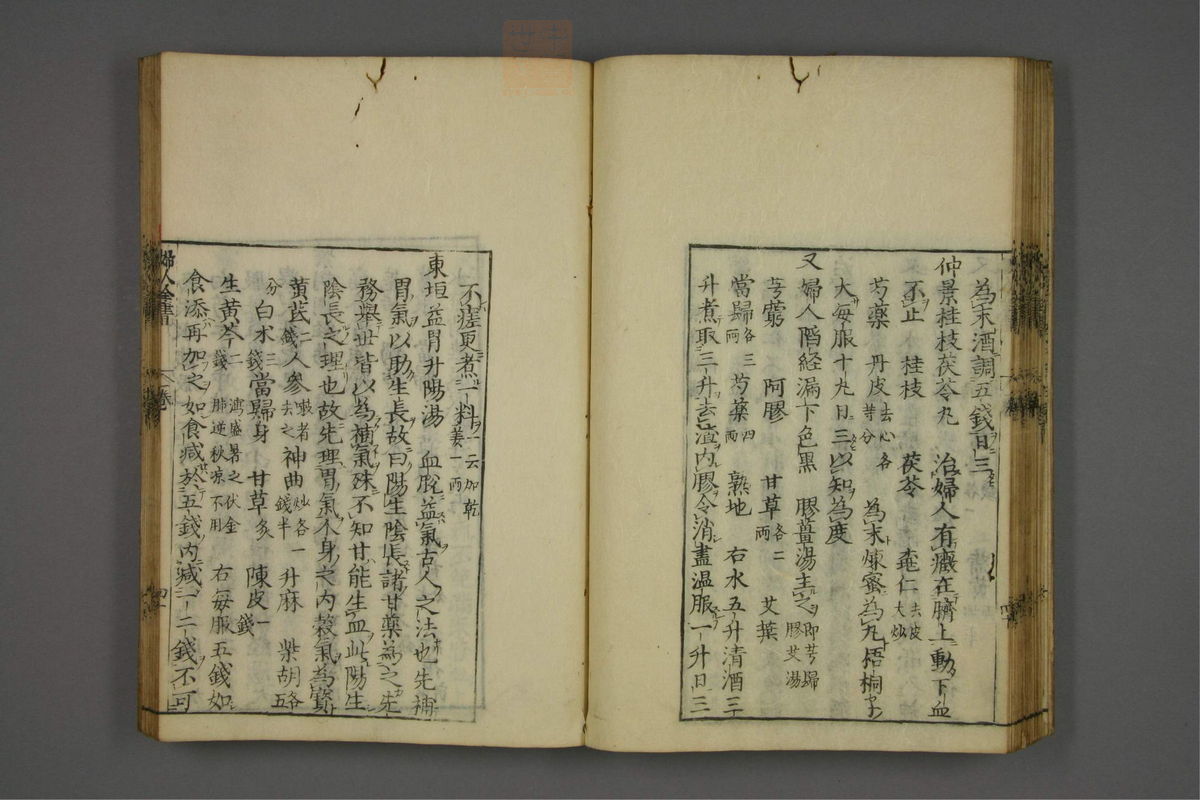 為末酒調五錢日三
仲景桂枝茯苓丸　治婦人有癥在臍上動下血
不止　桂枝　茯苓　桃仁去皮大炒
芍藥　丹皮去心各等分　為末煉蜜為丸梧桐子
大每服十丸日三以知為度
又婦人陷経漏下色黒　膠薑湯主之即芎歸膠艾湯
芎藭　阿膠　甘草各二両　艾葉
當歸各三両　芍藥四両　熟地　右水五升清酒三
升煮取三升去渣内膠令消盡温服一升日三
不瘥更煮一料一云加乾姜一両
東垣益胃升陽湯　血脫益氣古人之法也先補
胃氣以助生長故曰陽生陰長諸甘藥為之先
務舉世皆以為補氣殊不知甘能生血此陽生
陰長之理也故先理胃氣人身之内穀氣為寳
黄芪二錢人參嗽者去之神曲炒各一錢半　升麻　柴胡各五
分白朮三錢當歸身　甘草炙　陳皮一錢
生黄芩二錢瀉盛暑之伏金肺逆秋凉不用　右每服五錢如
食添再加之如食减於五錢内减一二錢不可
婦人全書